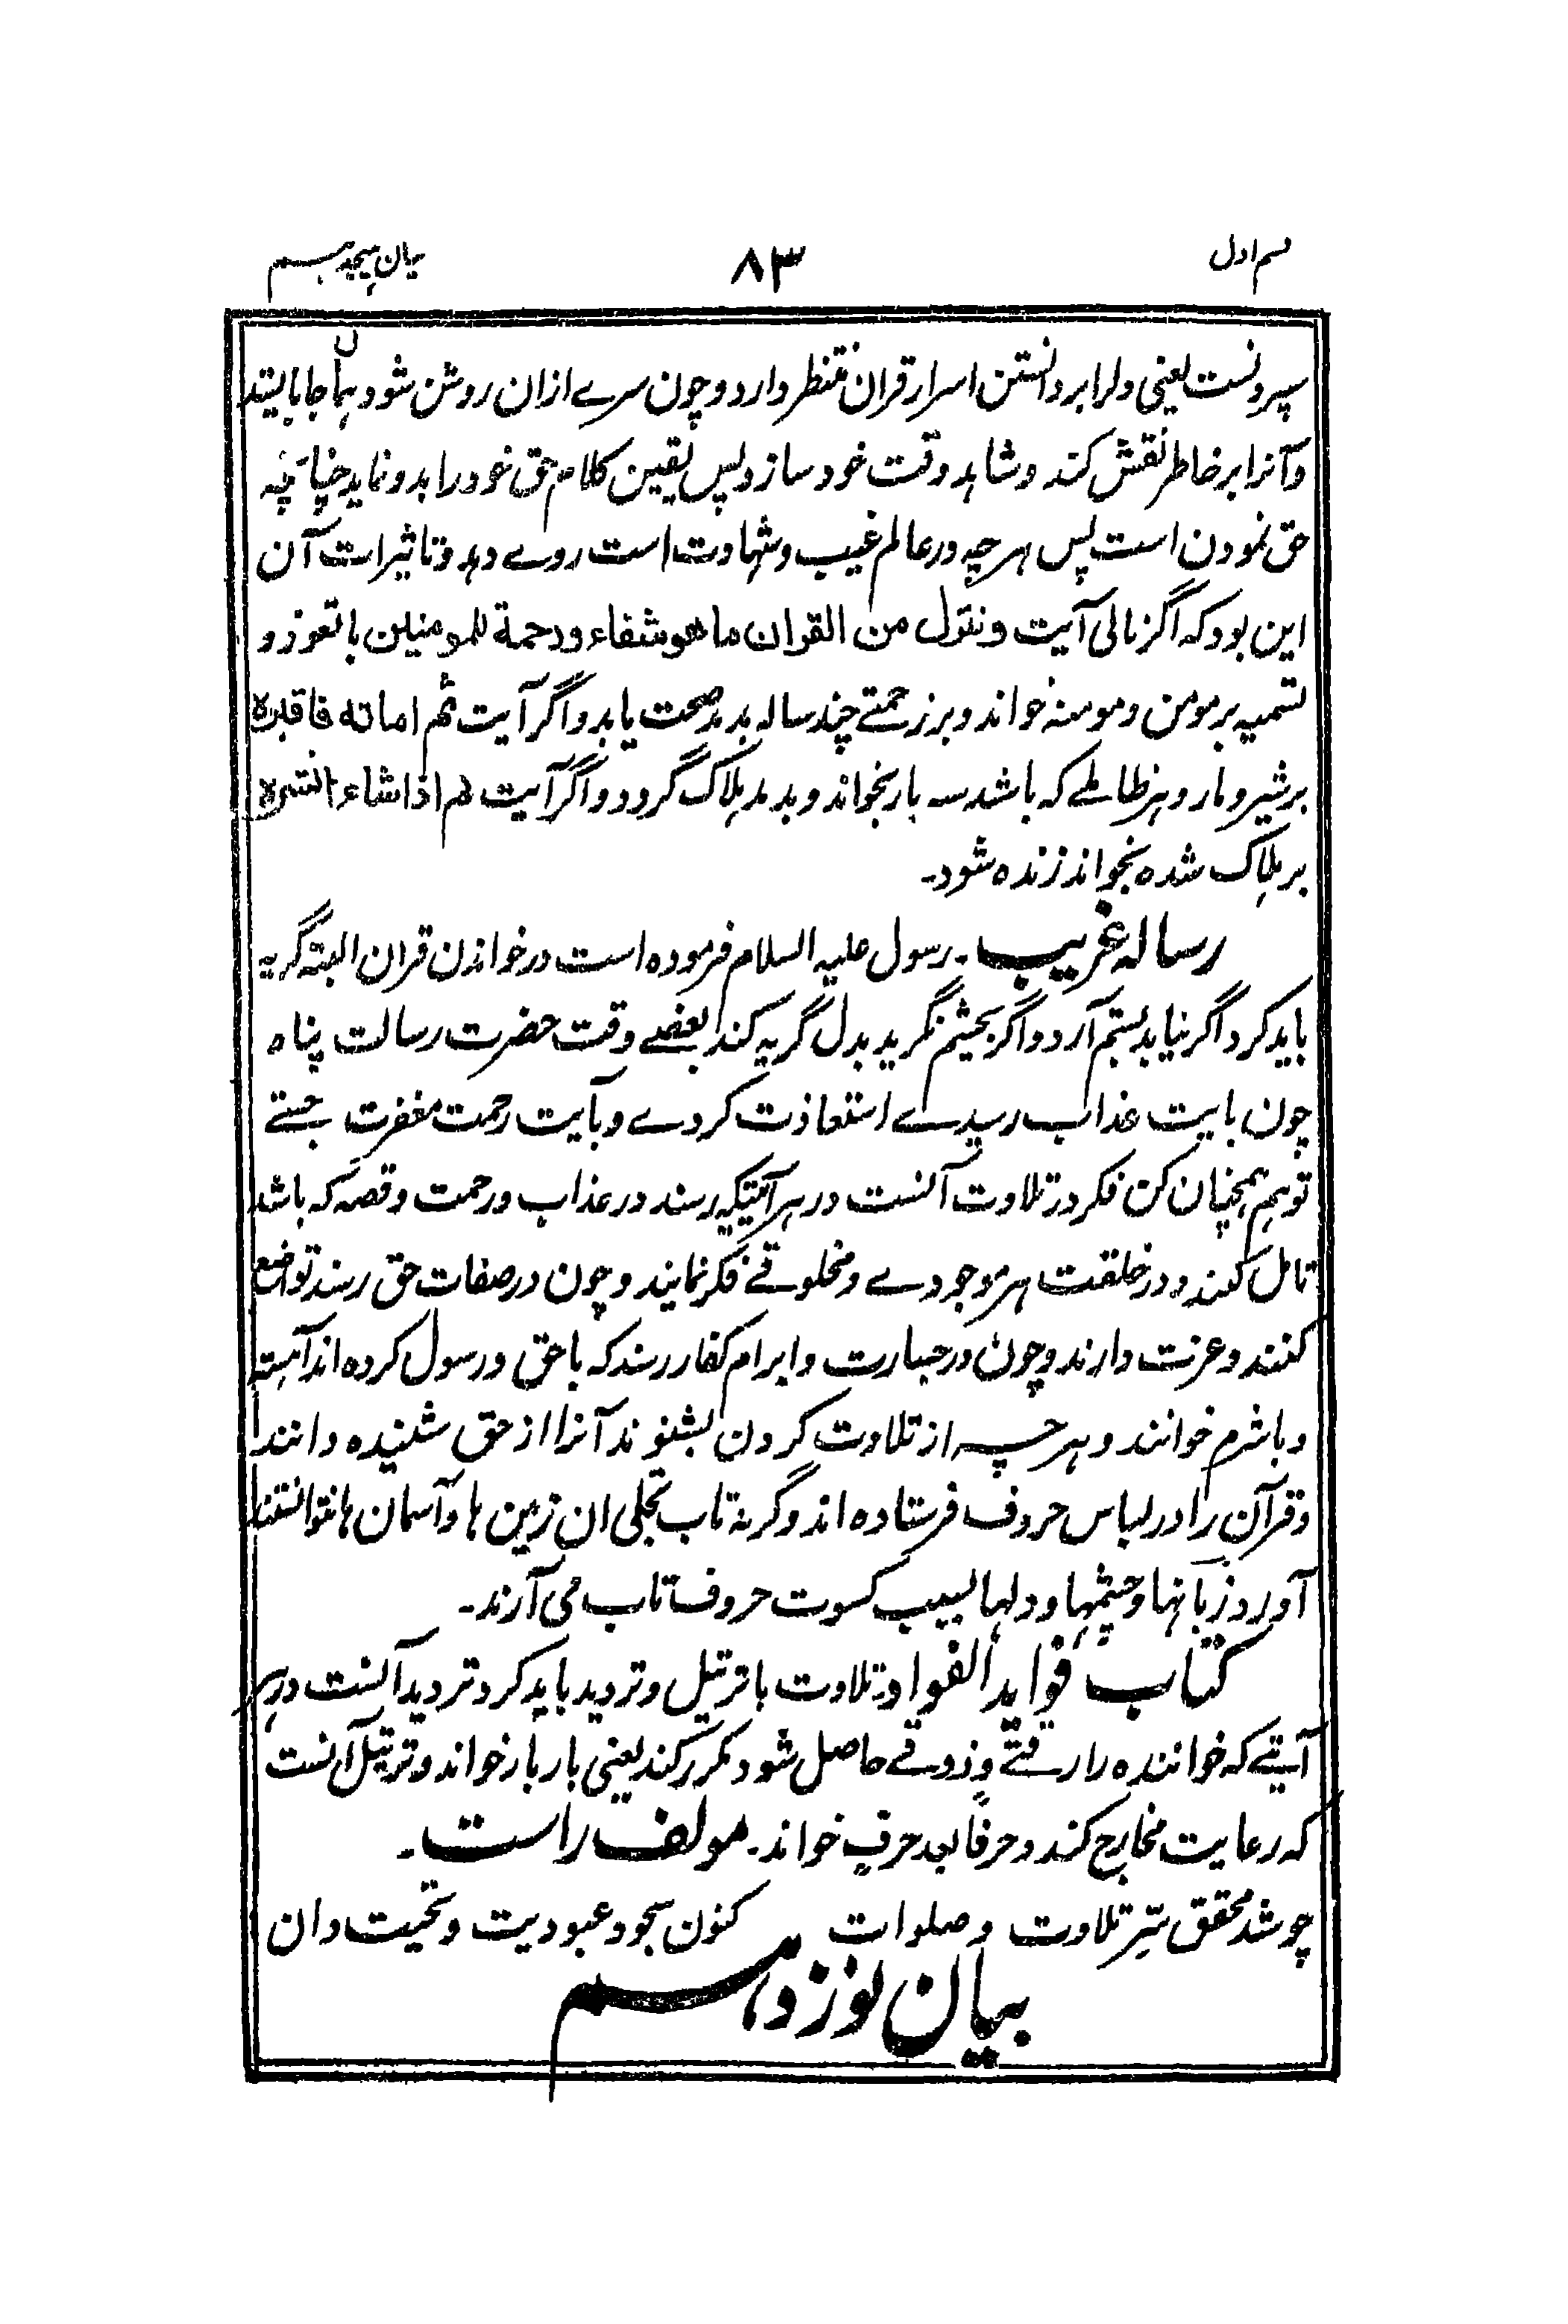 قسم اول ۸۳ بیان هیجدهم
سپردنست یعنی دلرا بر دانستن اسرار قران منتظر دارد و چون سرے ازان روشن شود همانجا بایستد
و آنرا بر خاطر نقش کند و شاهد وقت خود سازد پس یقین کلام حق خود را بدو نماید چنانچه
حق نمودن است پس هرچه در عالم غیب و شهادت است روے دهد و تاثیرات آن
این بود که اگر تالی آیت و ننزل من القران ما هو شفاء ورحمة للمومنین با تعوذ و
تسمیه بر مومن و مومنه خواند و بر زحمتے چند ساله بدمد صحت یابد و اگر آیت ثم اماته فاقبره
بر شیر و مار و هر ظالمے که باشد سه بار بخواند و بدمد هلاک گردد و اگر آیت ثم اذا شاء انشره
بر هلاک شده بخواند زنده شود۔
رساله غریب۔ رسول علیه السلام فرموده است در خواندن قران البته گریه
باید کرد اگر نیاید بستم آرد و اگر بچشم نگرید بدل گریه کند بعضے وقت حضرت رسالت پناه
چون بایت عذاب رسیدے استعاذت کردے و بآیت رحمت مغفرت جستے
تو هم همچنان کن فکر در تلاوت آنست در هر آیتیکه رسند در عذاب و رحمت و قصه که باشد
تامل کنند و در خلقت هر موجودے و مخلوقے فکر نمایند و چون در صفات حق رسند تواضع
کنند و عزت دارند و چون در جسارت و ابرام کفار رسند که با حق و رسول کرده اند آهسته
و باشرم خوانند و هرچه از تلاوت کردن بشنوند آنرا از حق شنیده دانند
و قرآن را در لباس حروف فرستاده اند و گرنه تاب تجلی ان زمین ها و آسمان ها نتوانستند
آورد و زبانها و چشمها و دلها بسبب کسوت حروف تاب می آرند۔
کتاب فواید الفواد۔ تلاوت با ترتیل و تردید باید کرد تردید آنست در هر
آیتے که خواننده را رقتے و ذوقے حاصل شود مکرر کند یعنی بار بار خواند و ترتیل آنست
که رعایت مخارج کند و حرفاً بعد حرفٍ خواند۔ مولف راست۔
چو شد محقق سِرّ تلاوت و صلوات کنون سجود عبودیت و تحیت دان
بیان نوزدهم